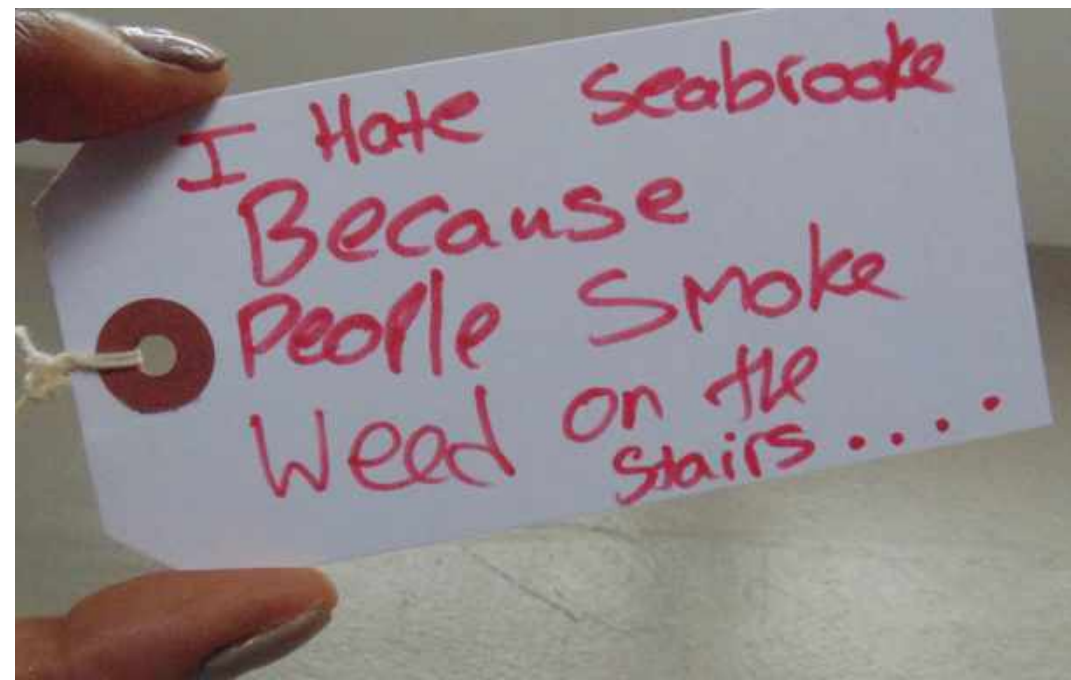 I Hate Seabrooke
Because
People Smoke
Weed on the
stairs....